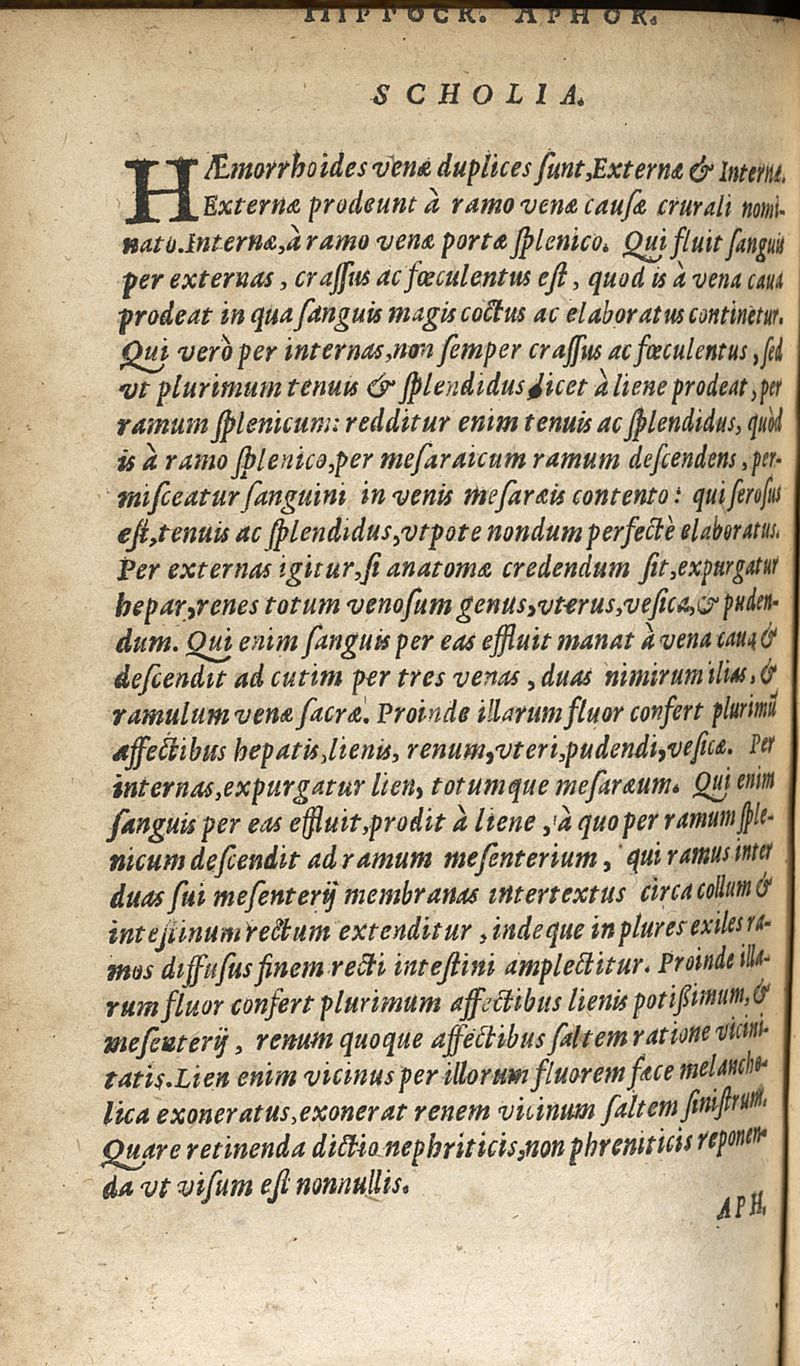 HIPPOCR. APHOR.
SCHOLIA.
HÆmorrhoides venæ duplices ſunt, Externæ & Internæ.
Externæ prodeunt à ramo venæ cauſæ crurali nomi-
nato. Internæ, à ramo venæ portæ ſplenico. Qui fluit ſanguis
per externas, craſſus ac fœculentus eſt, quod is à vena caua
prodeat in qua ſanguis magis coctus ac elaboratus continetur.
Qui verò per internas, non ſemper craſſus ac fœculentus, ſed
vt plurimum tenuis & ſplendidus licet à liene prodeat, per
ramum ſplenicum: redditur enim tenuis ac ſplendidus, quòd
is à ramo ſplenico, per meſaraicum ramum deſcendens, per-
miſceatur ſanguini in venis meſaræis contento: qui ſeroſus
eſt, tenuis ac ſplendidus, vtpote nondum perfectè elaboratus.
Per externas igitur, ſi anatomæ credendum ſit, expurgatur
hepar, renes totum venoſum genus, vterus, veſica, & puden-
dum. Qui enim ſanguis per eas effluit manat à vena caua &
deſcendit ad cutim per tres venas, duas nimirum ilias, &
ramulum venæ ſacræ. Proinde illarum fluor confert plurimū
affectibus hepatis, lienis, renum, vteri, pudendi, veſicæ. Per
internas, expurgatur lien, totumque meſaræum. Qui enim
ſanguis per eas effluit, prodit à liene, à quo per ramum ſple-
nicum deſcendit ad ramum meſenterium, qui ramus inter
duas ſui meſenterij membranas intertextus circa collum &
inteſtinum rectum extenditur, indeque in plures exiles ra-
mos diffuſus finem recti inteſtini amplectitur. Proinde illa-
rum fluor confert plurimum affectibus lienis potiſſimum, &
meſenterij, renum quoque affectibus ſaltem ratione vicini-
tatis. Lien enim vicinus per illorum fluorem fæce melancho-
lica exoneratus, exonerat renem vicinum ſaltem ſiniſtrum.
Quare retinenda dictio nephriticis, non phreniticis reponen-
da vt viſum eſt nonnullis.
APH.